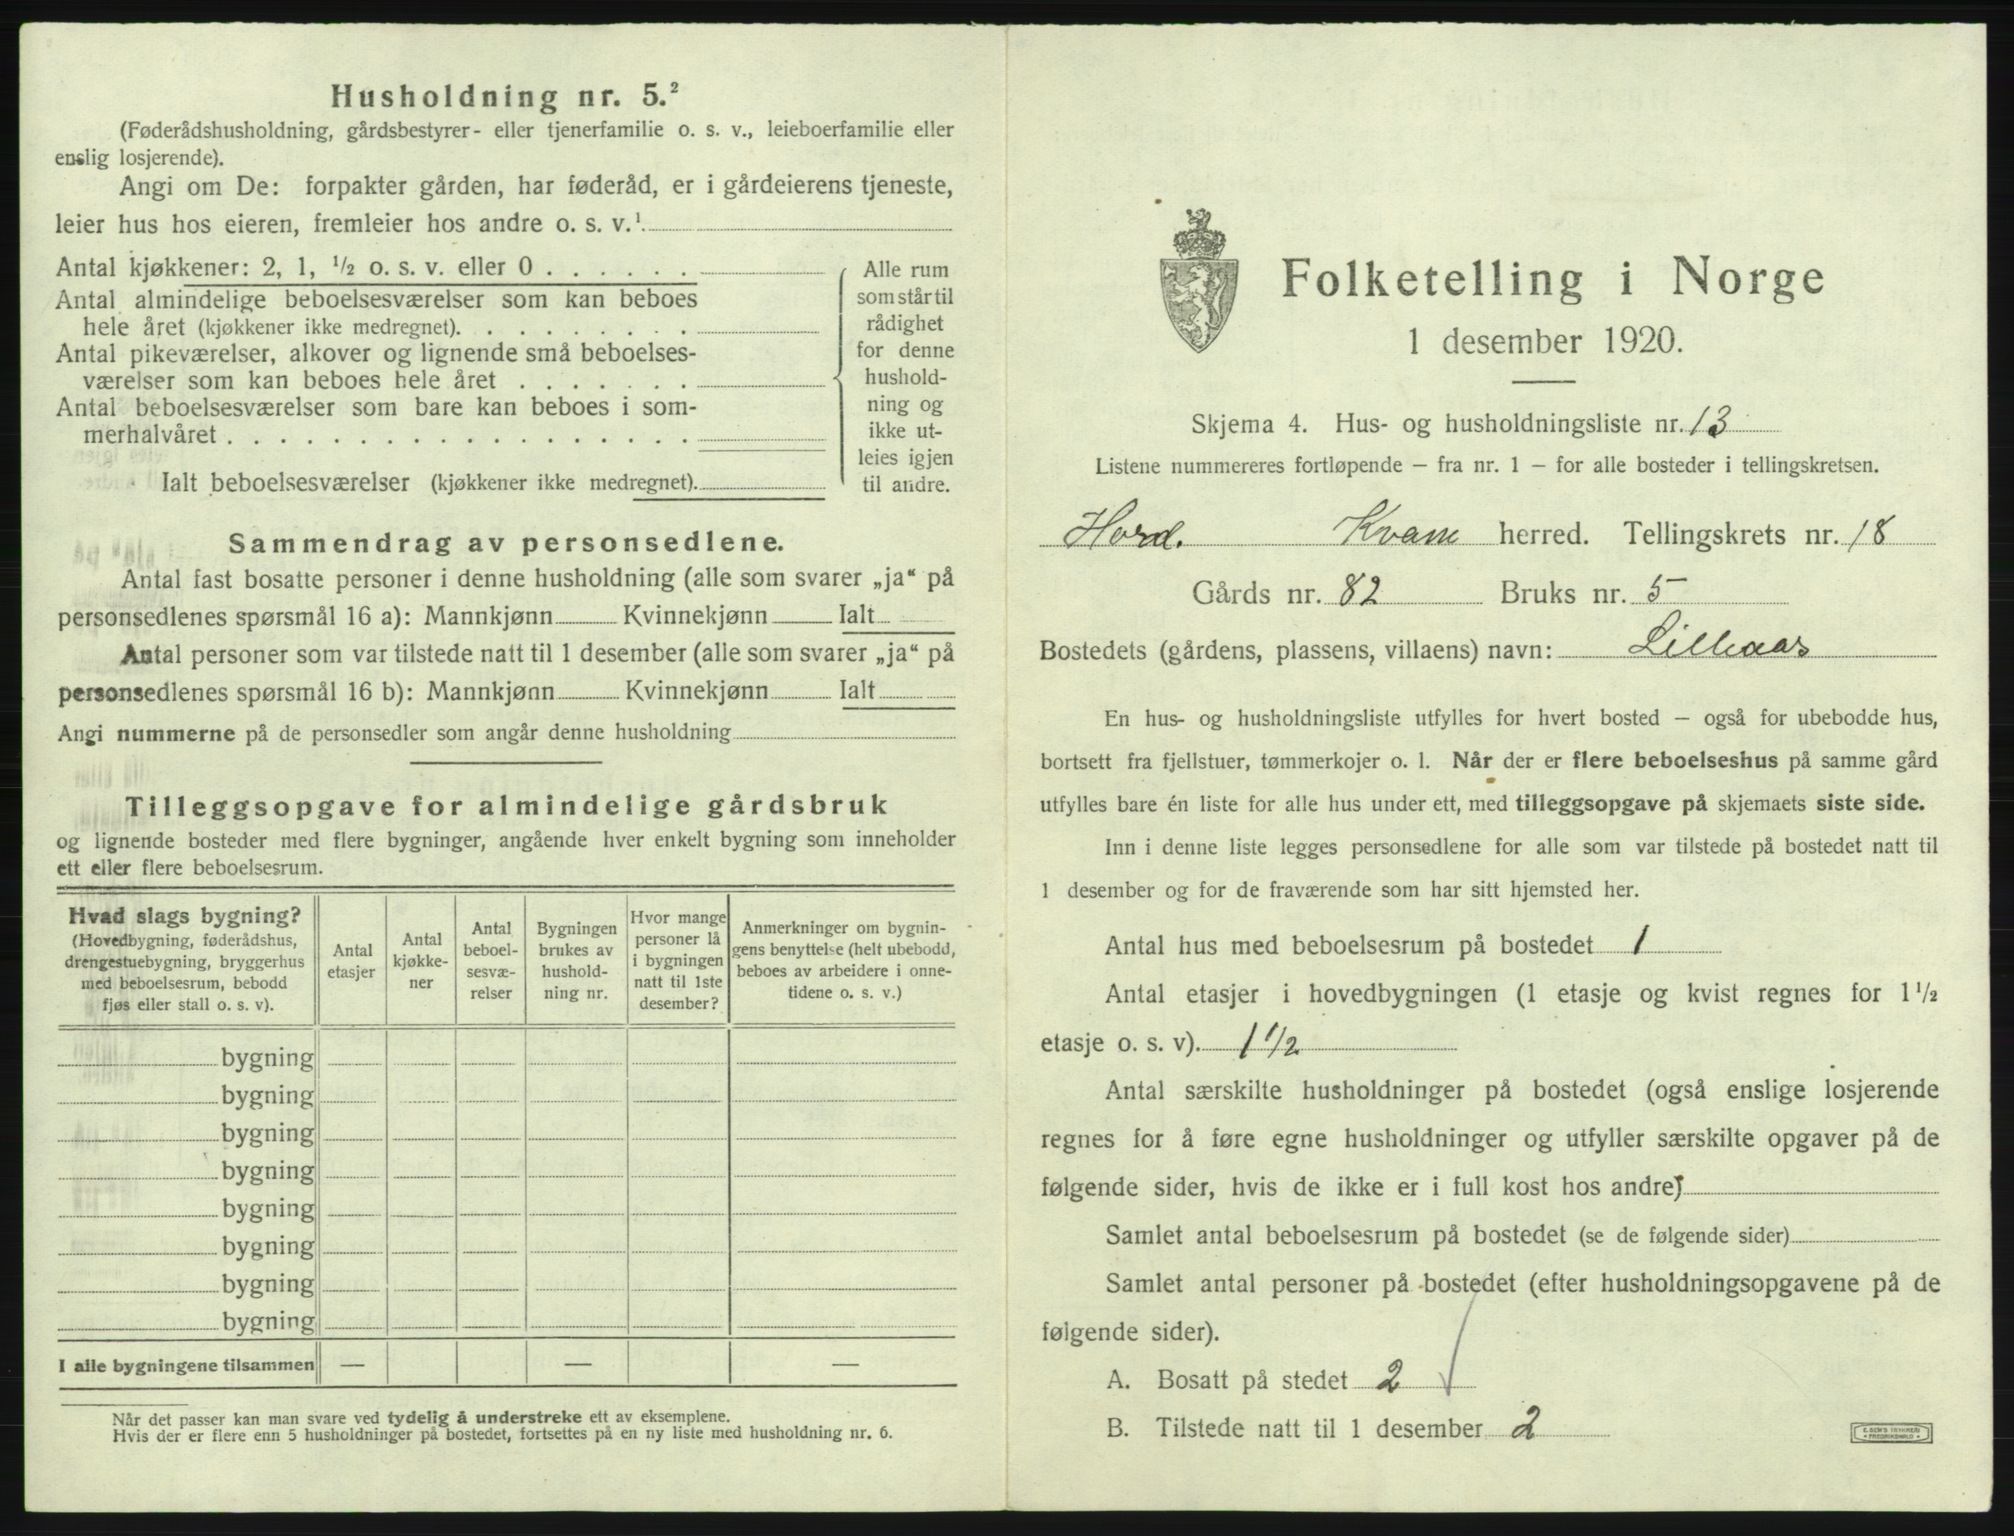 Husholdning nr. 5.²
(Føderådshusholdning, gårdsbestyrer- eller tjenerfamilie o. s. v., leieboerfamilie eller
enslig losjerende).
Angi om De: forpakter gården, har føderåd, er i gårdeierens tjeneste,
leier hus hos eieren, fremleier hos andre o. s. v.¹
Antal kjøkkener: 2, 1, ½ o. s. v. eller 0 . . . . . .
Antal almindelige beboelsesværelser som kan beboes
hele året (kjøkkener ikke medregnet). . . . . . . . .
Antal pikeværelser, alkover og lignende små beboelses-
værelser som kan beboes hele året . . . . . . .
Antal beboelsesværelser som bare kan beboes i som-
merhalvåret . . . . . . . . . . . . . . . . . .
Ialt beboelsesværelser (kjøkkener ikke medregnet).
Alle rum
som står til
rådighet
for denne
hushold-
ning og
ikke ut-
leies igjen
til andre.
Sammendrag av personsedlene.
Antal fast bosatte personer i denne husholdning (alle som svarer „ja“ på
personsedlenes spørsmål 16 a): Mannkjønn Kvinnekjønn Ialt
Antal personer som var tilstede natt til 1 desember (alle som svarer „ja“ på
personsedlenes spørsmål 16 b): Mannkjønn Kvinnekjønn Ialt
Angi nummerne på de personsedler som angår denne husholdning
Tilleggsopgave for almindelige gårdsbruk
og lignende bosteder med flere bygninger, angående hver enkelt bygning som inneholder
ett eller flere beboelsesrum.
Hvad slags bygning?
(Hovedbygning, føderådshus,
drengestuebygning, bryggerhus
med beboelsesrum, bebodd
fjøs eller stall o. s. v).
Antal
etasjer
Antal
kjøkke-
ner
Antal
beboel-
sesvæ-
relser
Bygningen
brukes av
hushold-
ning nr.
Hvor mange
personer lå
i bygningen
natt til 1ste
desember?
Anmerkninger om bygnin-
gens benyttelse (helt ubebodd,
beboes av arbeidere i onne-
tidene o. s. v.)
bygning
bygning
bygning
bygning
bygning
bygning
bygning
bygning
I alle bygningene tilsammen — — —
Når det passer kan man svare ved tydelig å understreke ett av eksemplene.
Hvis der er flere enn 5 husholdninger på bostedet, fortsettes på en ny liste med husholdning nr. 6.
Folketelling i Norge
1 desember 1920.
Skjema 4. Hus- og husholdningsliste nr. 13
Listene nummereres fortløpende – fra nr. 1 – for alle bosteder i tellingskretsen.
Hord. Kvam herred. Tellingskrets nr. 18
Gårds nr. 82 Bruks nr. 5
Bostedets (gårdens, plassens, villaens) navn: Lillaas
En hus- og husholdningsliste utfylles for hvert bosted – også for ubebodde hus,
bortsett fra fjellstuer, tømmerkojer o. l. Når der er flere beboelseshus på samme gård
utfylles bare én liste for alle hus under ett, med tilleggsopgave på skjemaets siste side.
Inn i denne liste legges personsedlene for alle som var tilstede på bostedet natt til
1 desember og for de fraværende som har sitt hjemsted her.
Antal hus med beboelsesrum på bostedet 1
Antal etasjer i hovedbygningen (1 etasje og kvist regnes for 1½
etasje o. s. v). 1½
Antal særskilte husholdninger på bostedet (også enslige losjerende
regnes for å føre egne husholdninger og utfyller særskilte opgaver på de
følgende sider, hvis de ikke er i full kost hos andre)
Samlet antal beboelsesrum på bostedet (se de følgende sider)
Samlet antal personer på bostedet (efter husholdningsopgavene på de
følgende sider).
A. Bosatt på stedet 2
B. Tilstede natt til 1 desember 2